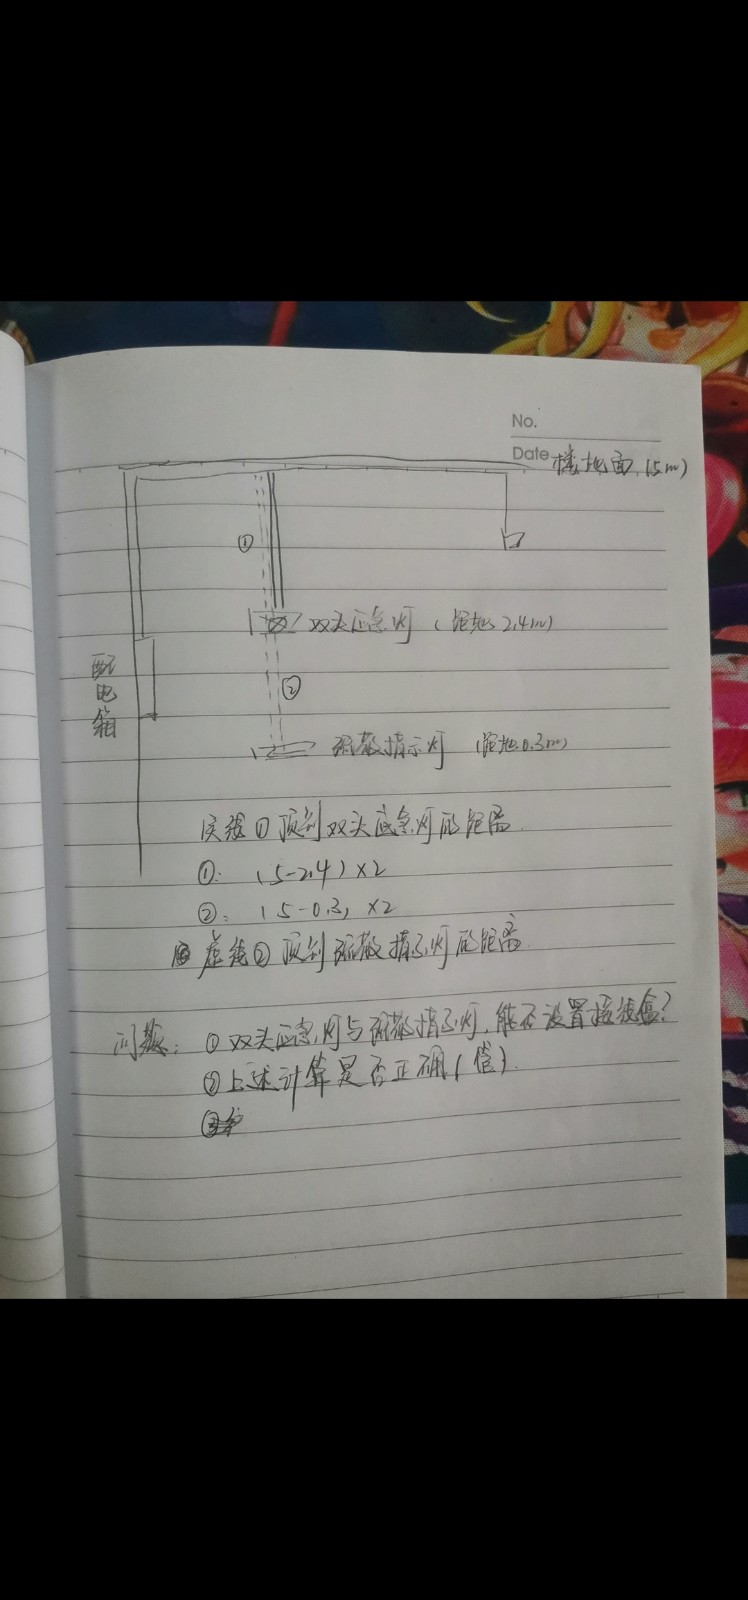 No.
Date
楼地面(5m)
①
双头应急灯(距地2.4m)
配电箱
②
疏散指示灯(距地0.3m)
实线①顶到双头应急灯的距离
①:(5-2.4)×2
②:(5-0.3)×2
虚线②顶到疏散指示灯的距离
问题:①双头应急灯与疏散指示灯,能否设置接线盒?
②上述计算是否正确(管).